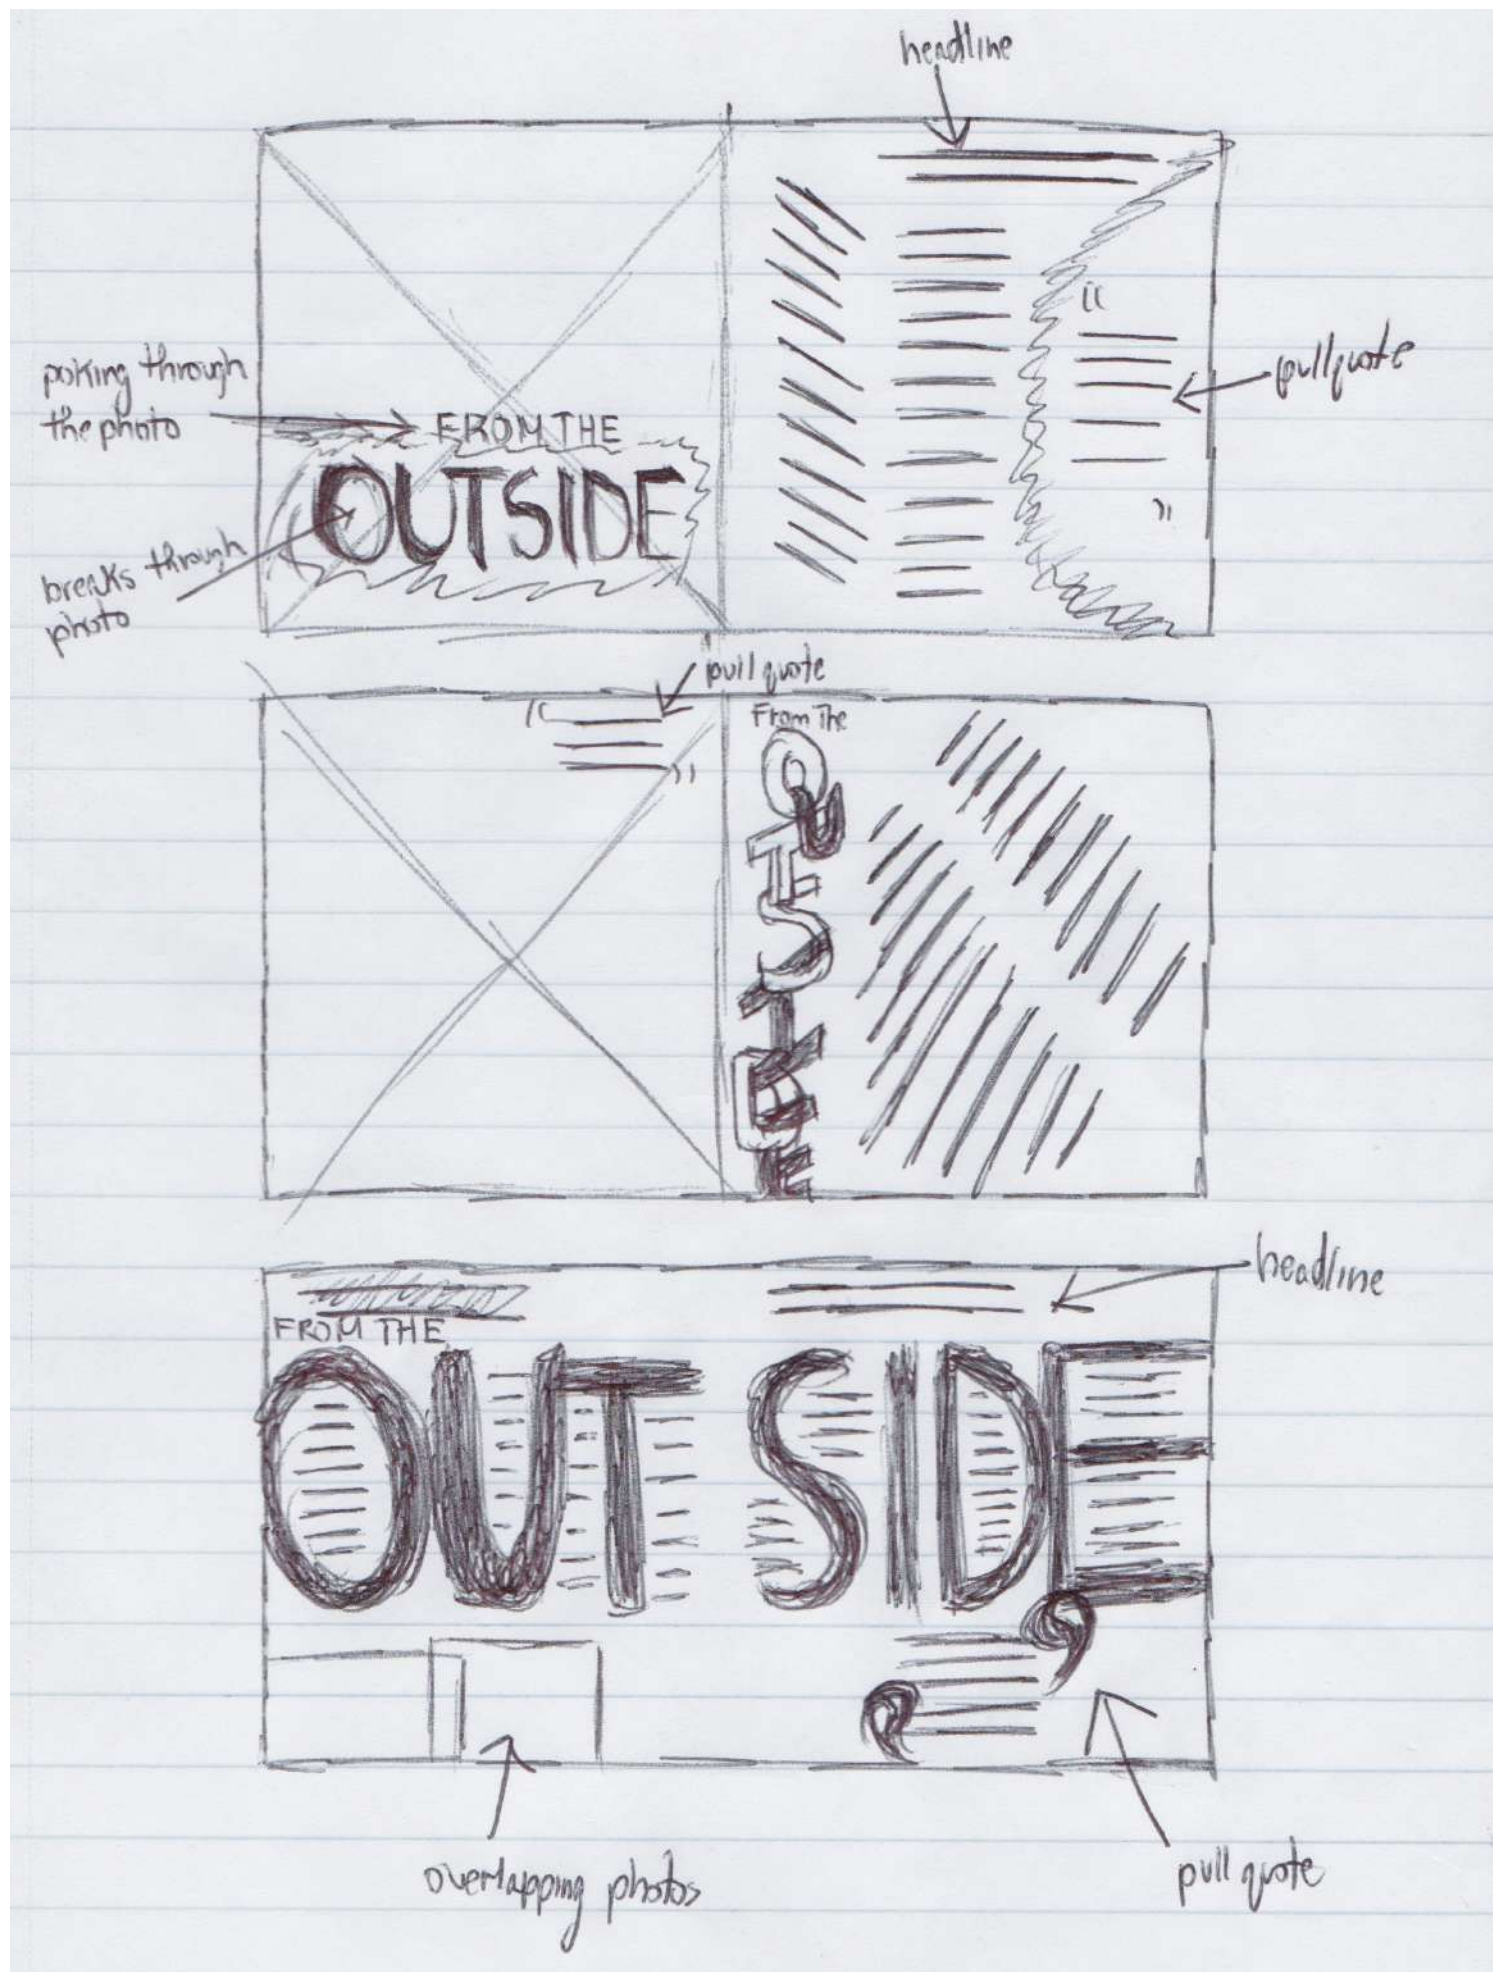 headline
poking through
the photo
FROM THE
OUTSIDE
breaks through
photo
“
pull quote
”
pull quote
“
”
From The
OUTSIDE
headline
FROM THE
OUTSIDE
overlapping photos
pull quote